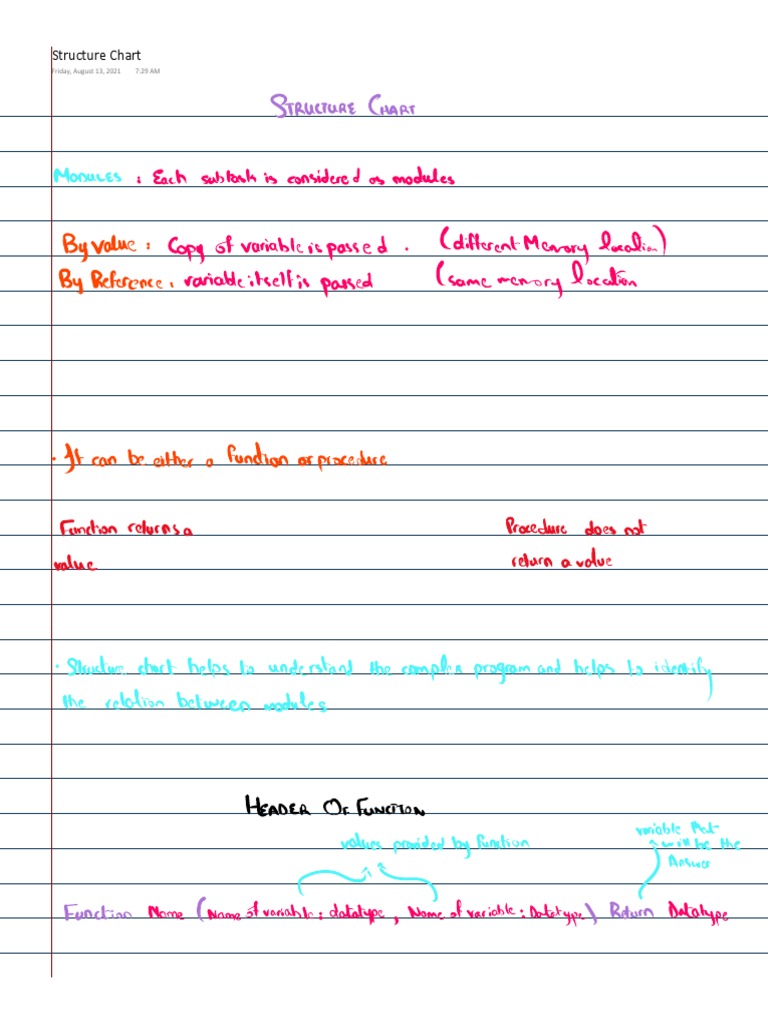 Structure Chart
Friday, August 13, 2021 7:29 AM
STRUCTURE CHART
MODULES : Each subtask is considered as modules
By value : Copy of variable is passed . (different Memory location)
By Reference : variable itself is passed (same memory location
· It can be either a function or procedure
Function returns a Procedure does not
value return a value
· Structure chart helps to understand the complex program and helps to identify
the relation between modules
HEADER OF FUNCTION
values provided by function
variable that
will be the
Answer
Function Name (Name of variable : datatype , Name of variable : Datatype) Return Datatype